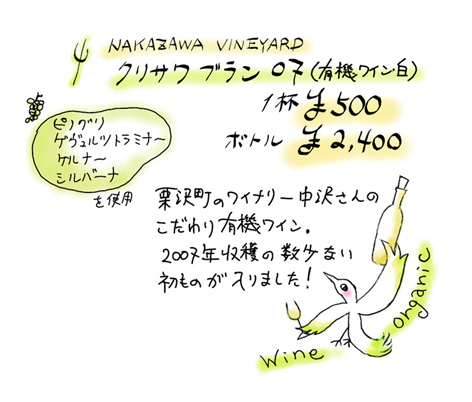 NAKAZAWA VINEYARD
クリサワブラン 07 (有機ワイン白)
1杯 ¥500
ボトル ¥2,400
ピノグリ
ゲヴュルツトラミナー
ケルナー
シルバーナ
を使用
栗沢町のワイナリー中沢さんの
こだわり有機ワイン。
2007年収穫の数少ない
初ものが入りました!
wine organic